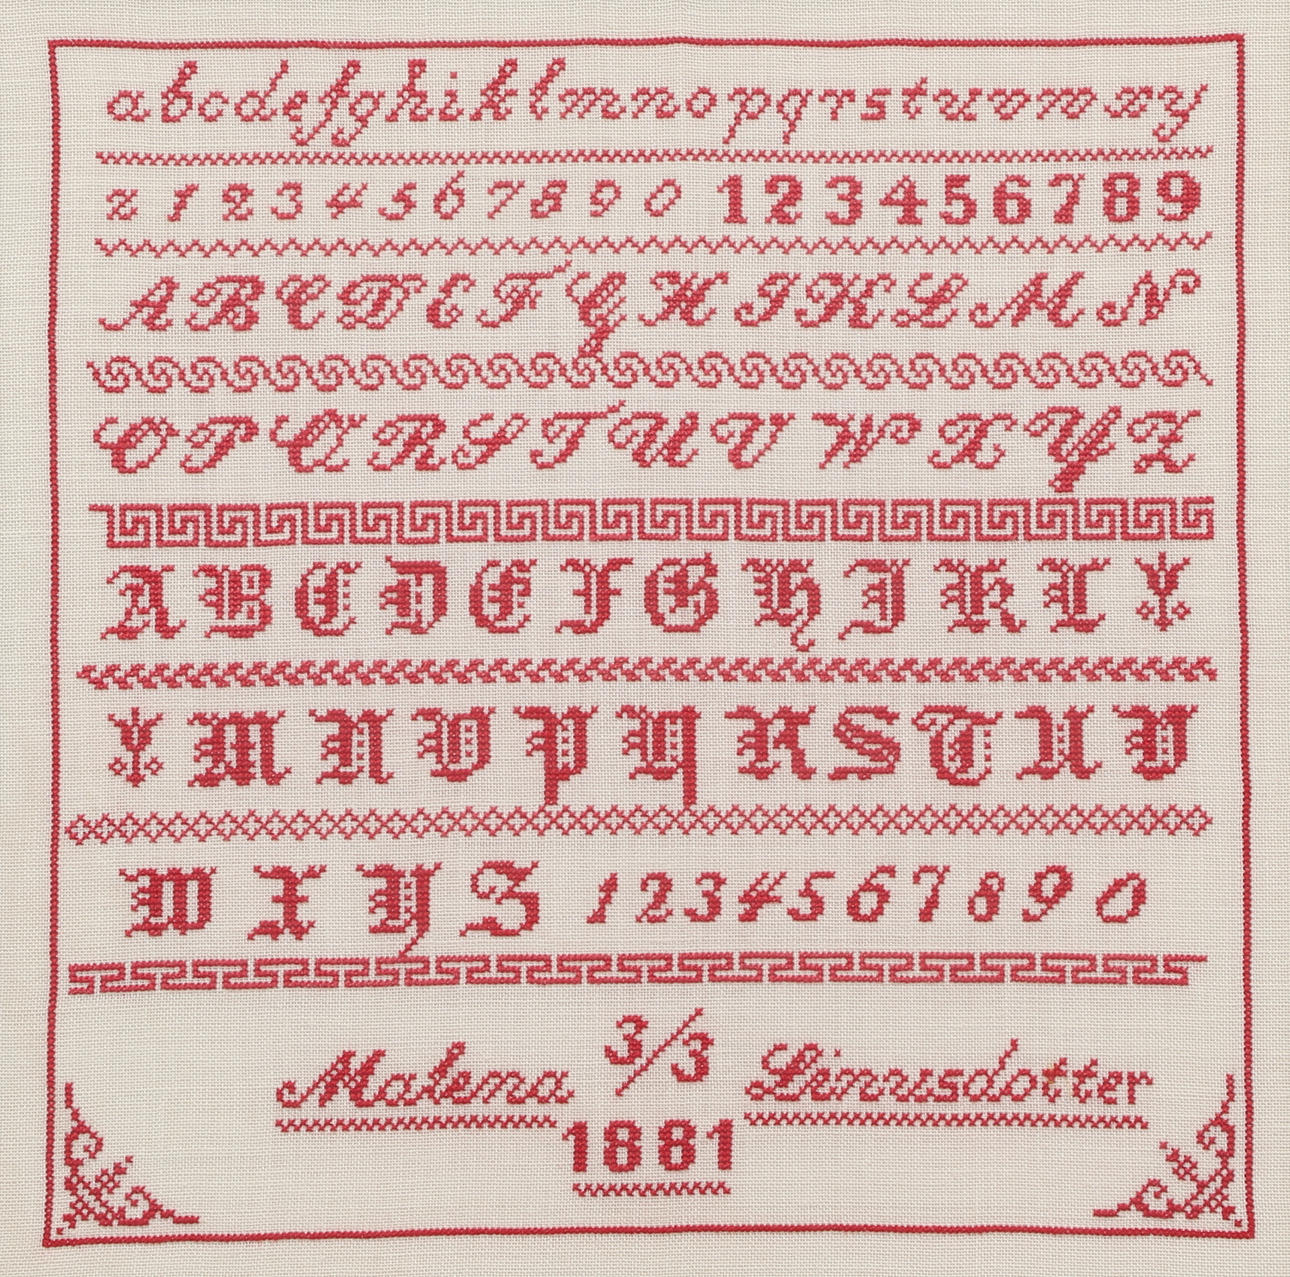 abcdefghiklmnopqrstuvwxy
z1234567890 123456789
ABCDEFGHIKLMN
OPQRSTUVWXYZ
ABCDEFGHIKL
MNOPQRSTUV
WXYZ 1234567890
Malena 3/3 Linusdotter
1881